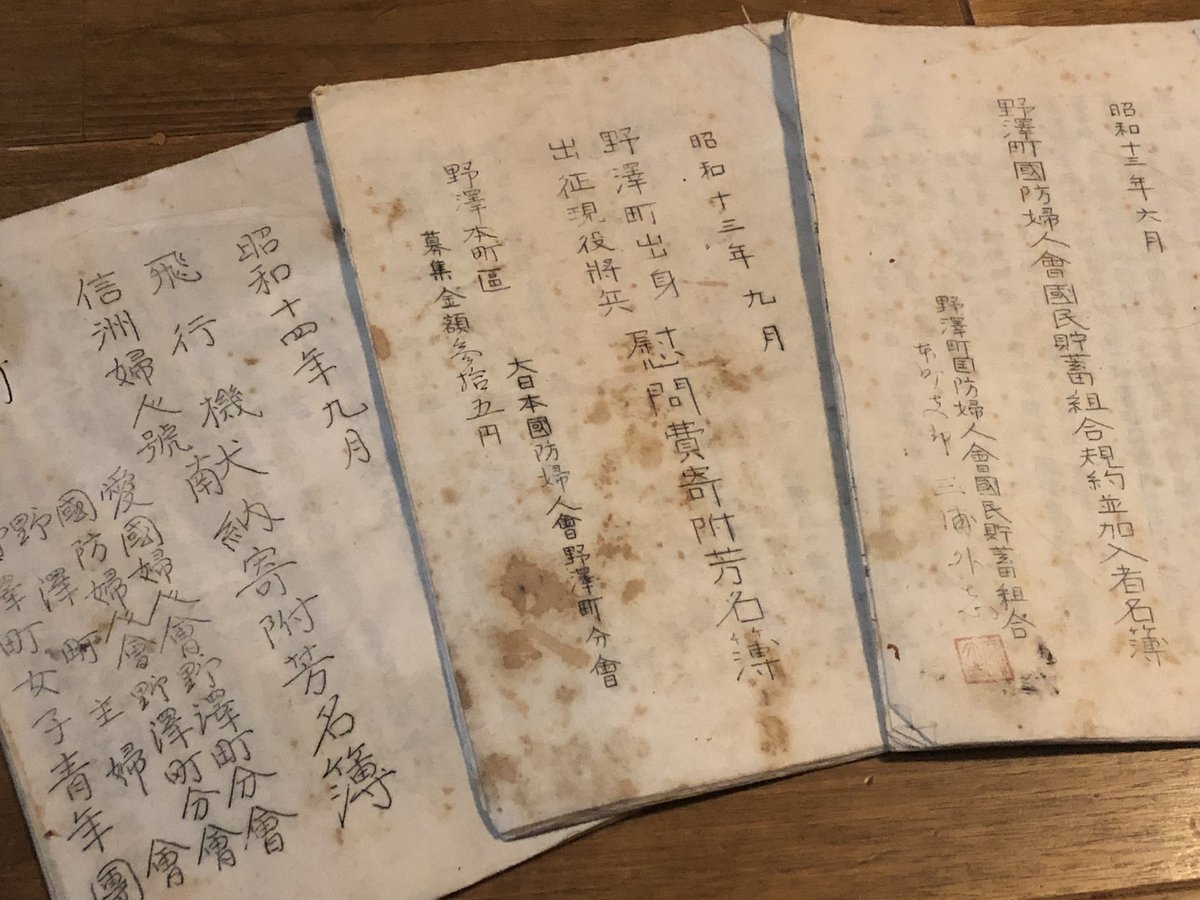 昭和十三年六月
野澤町國防婦人會國民貯蓄組合規約並加入者名簿
野澤町国防婦人會國民貯蓄組合
三浦外志
昭和十三年九月
野澤町出身
出征現役將兵
慰問費寄附芳名簿
大日本國防婦人會野澤町分會
野澤本町區
募集金額参拾五円
昭和十四年九月
飛行機献納寄附芳名簿
信洲婦人號
愛國婦人會野澤町分會
國防婦人會野澤町分會
野澤町主婦會
野澤町女子青年團